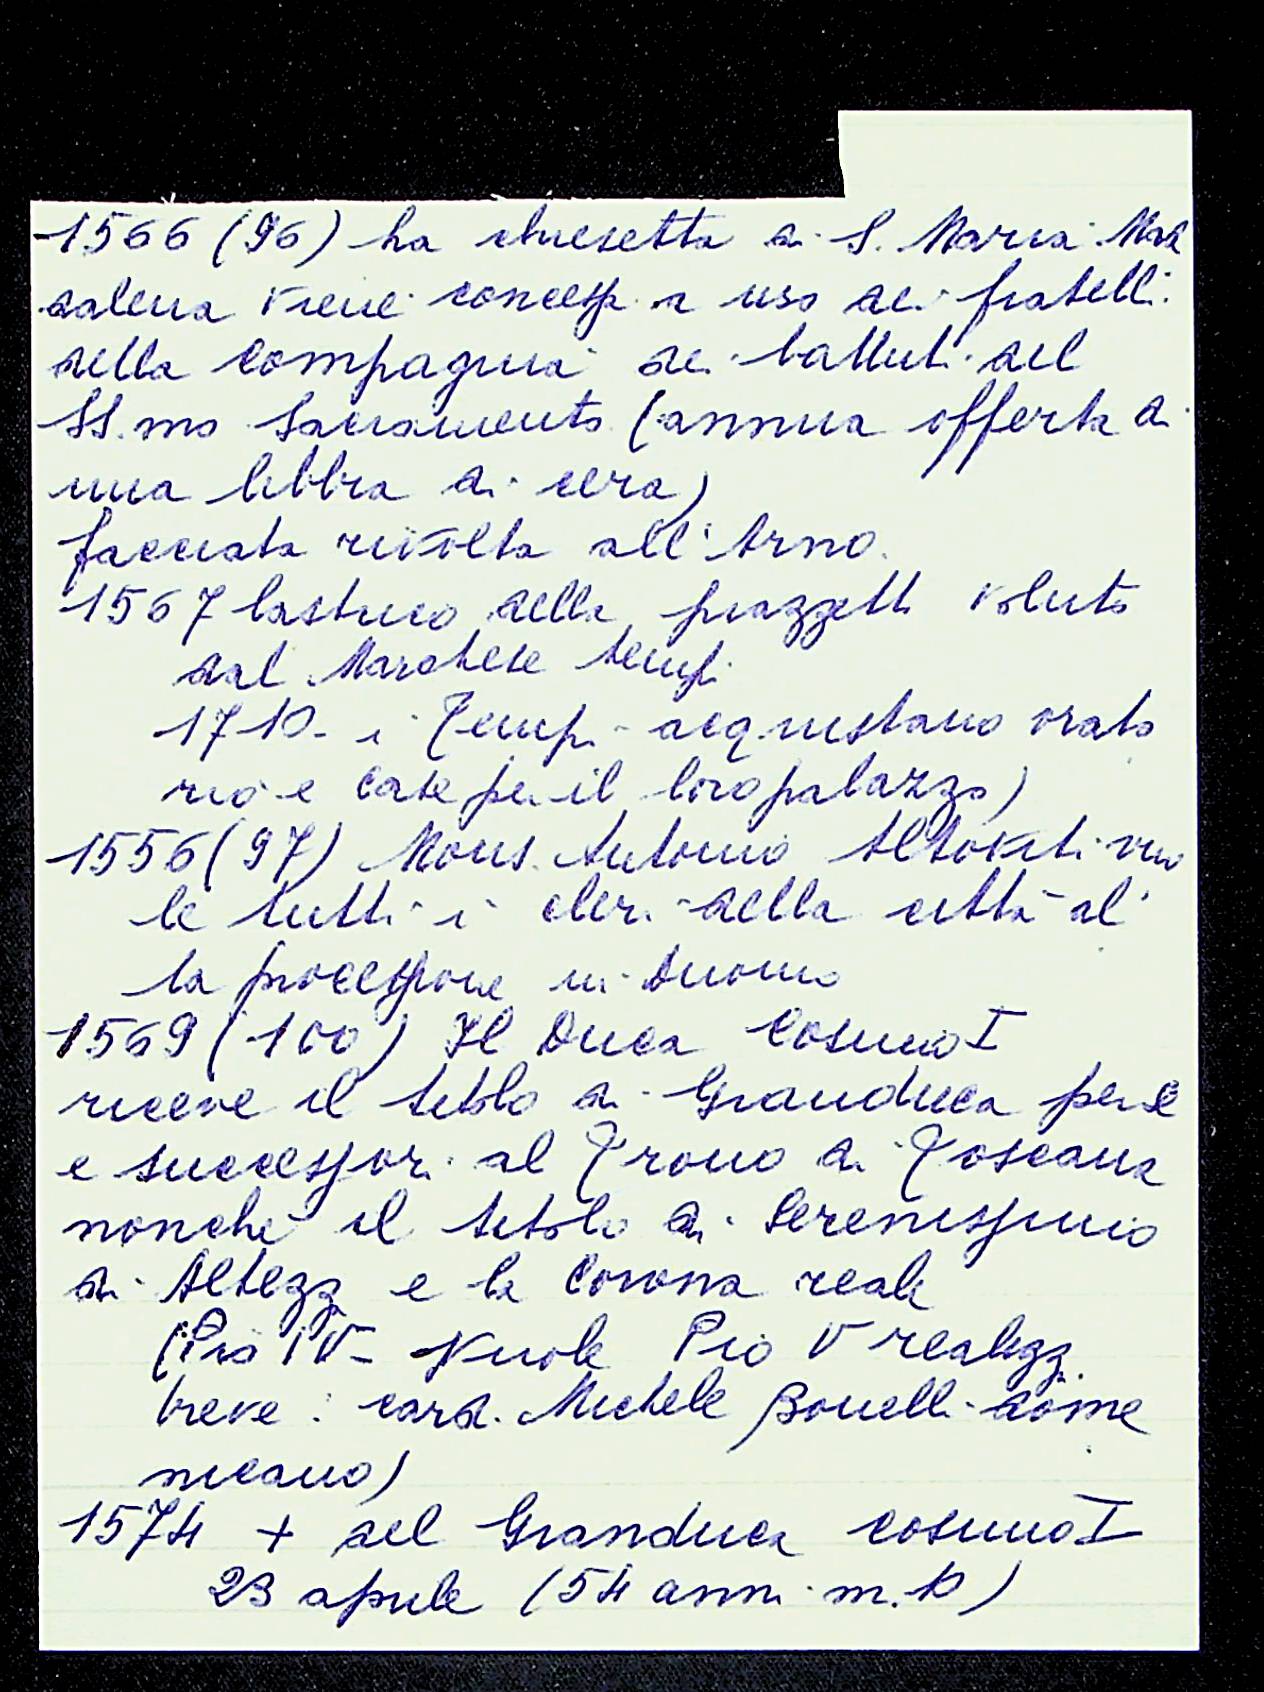 1566 (96) La chiesetta di S. Maria Mad
dalena viene concess. a uso dei fratelli
della Compagnia dei battuti del
SS.mo Sacramento (annua offerta di
una libbra di cera)
facciata rivolta all'Arno.
1567 lastrico della piazzetta voluto
dal Marchese Tempi
1710 - i Tempi acquistano orato
rio e case per il loro palazzo)
1556 (97) Mons. Antonio Altoviti vuo
le tutti i cleri della città al
la processione in Duomo
1569 (100) Il Duca Cosimo I
riceve il titolo di Granduca per se
e successori al Trono di Toscana
nonché il titolo di Serenissimo
di Altezza e la Corona reale
(Pio IV - vuole Pio V realizz.
breve : card. Michele Bonelli dome
nicano)
1574 + del Granduca Cosimo I
23 aprile (54 anni m. 10)